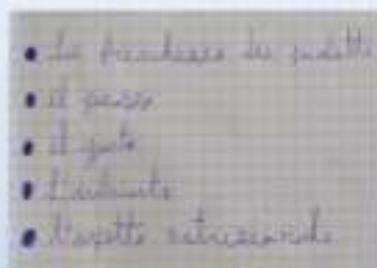 • La freschezza dei prodotti
• il prezzo
• il gusto
• L'ambiente
• l'aspetto nutrizionale